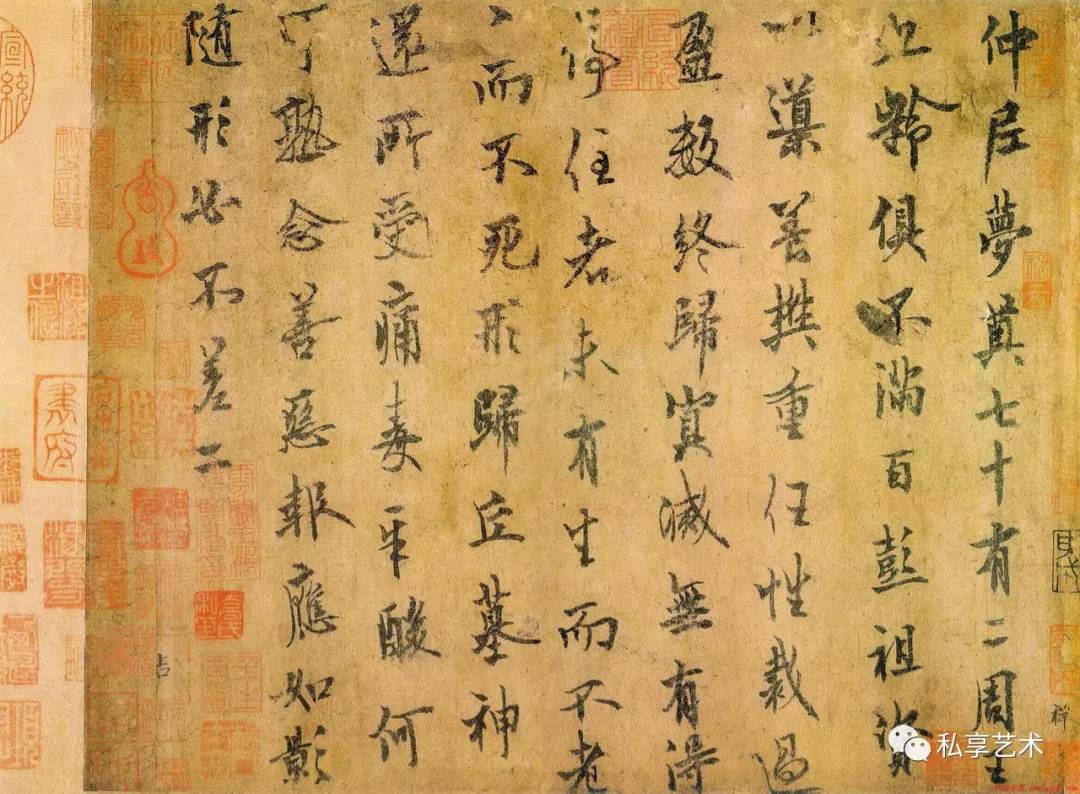 仲尼夢奠七十有二周王
九齡俱不滿百彭祖資
以導養樊重任性裁過
盈數終歸冥滅無有得
停住者未有生而不老
々而不死形歸丘墓神
還所受痛毒辛酸何
可熟念善惡報應如影
随形必不差二
私享艺术